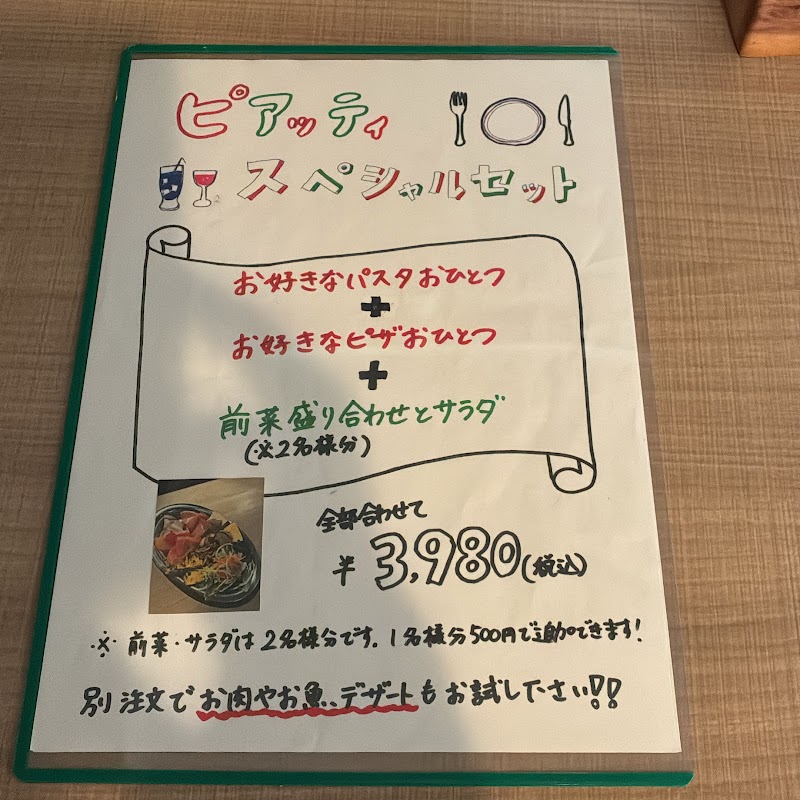 ピアッティ
スペシャルセット
お好きなパスタおひとつ
+
お好きなピザおひとつ
+
前菜盛り合わせとサラダ
(※2名様分)
全部合わせて
¥3,980(税込)
※ 前菜・サラダは2名様分です。1名様分500円で追加できます!
別注文でお肉やお魚、デザートもお試し下さい!!